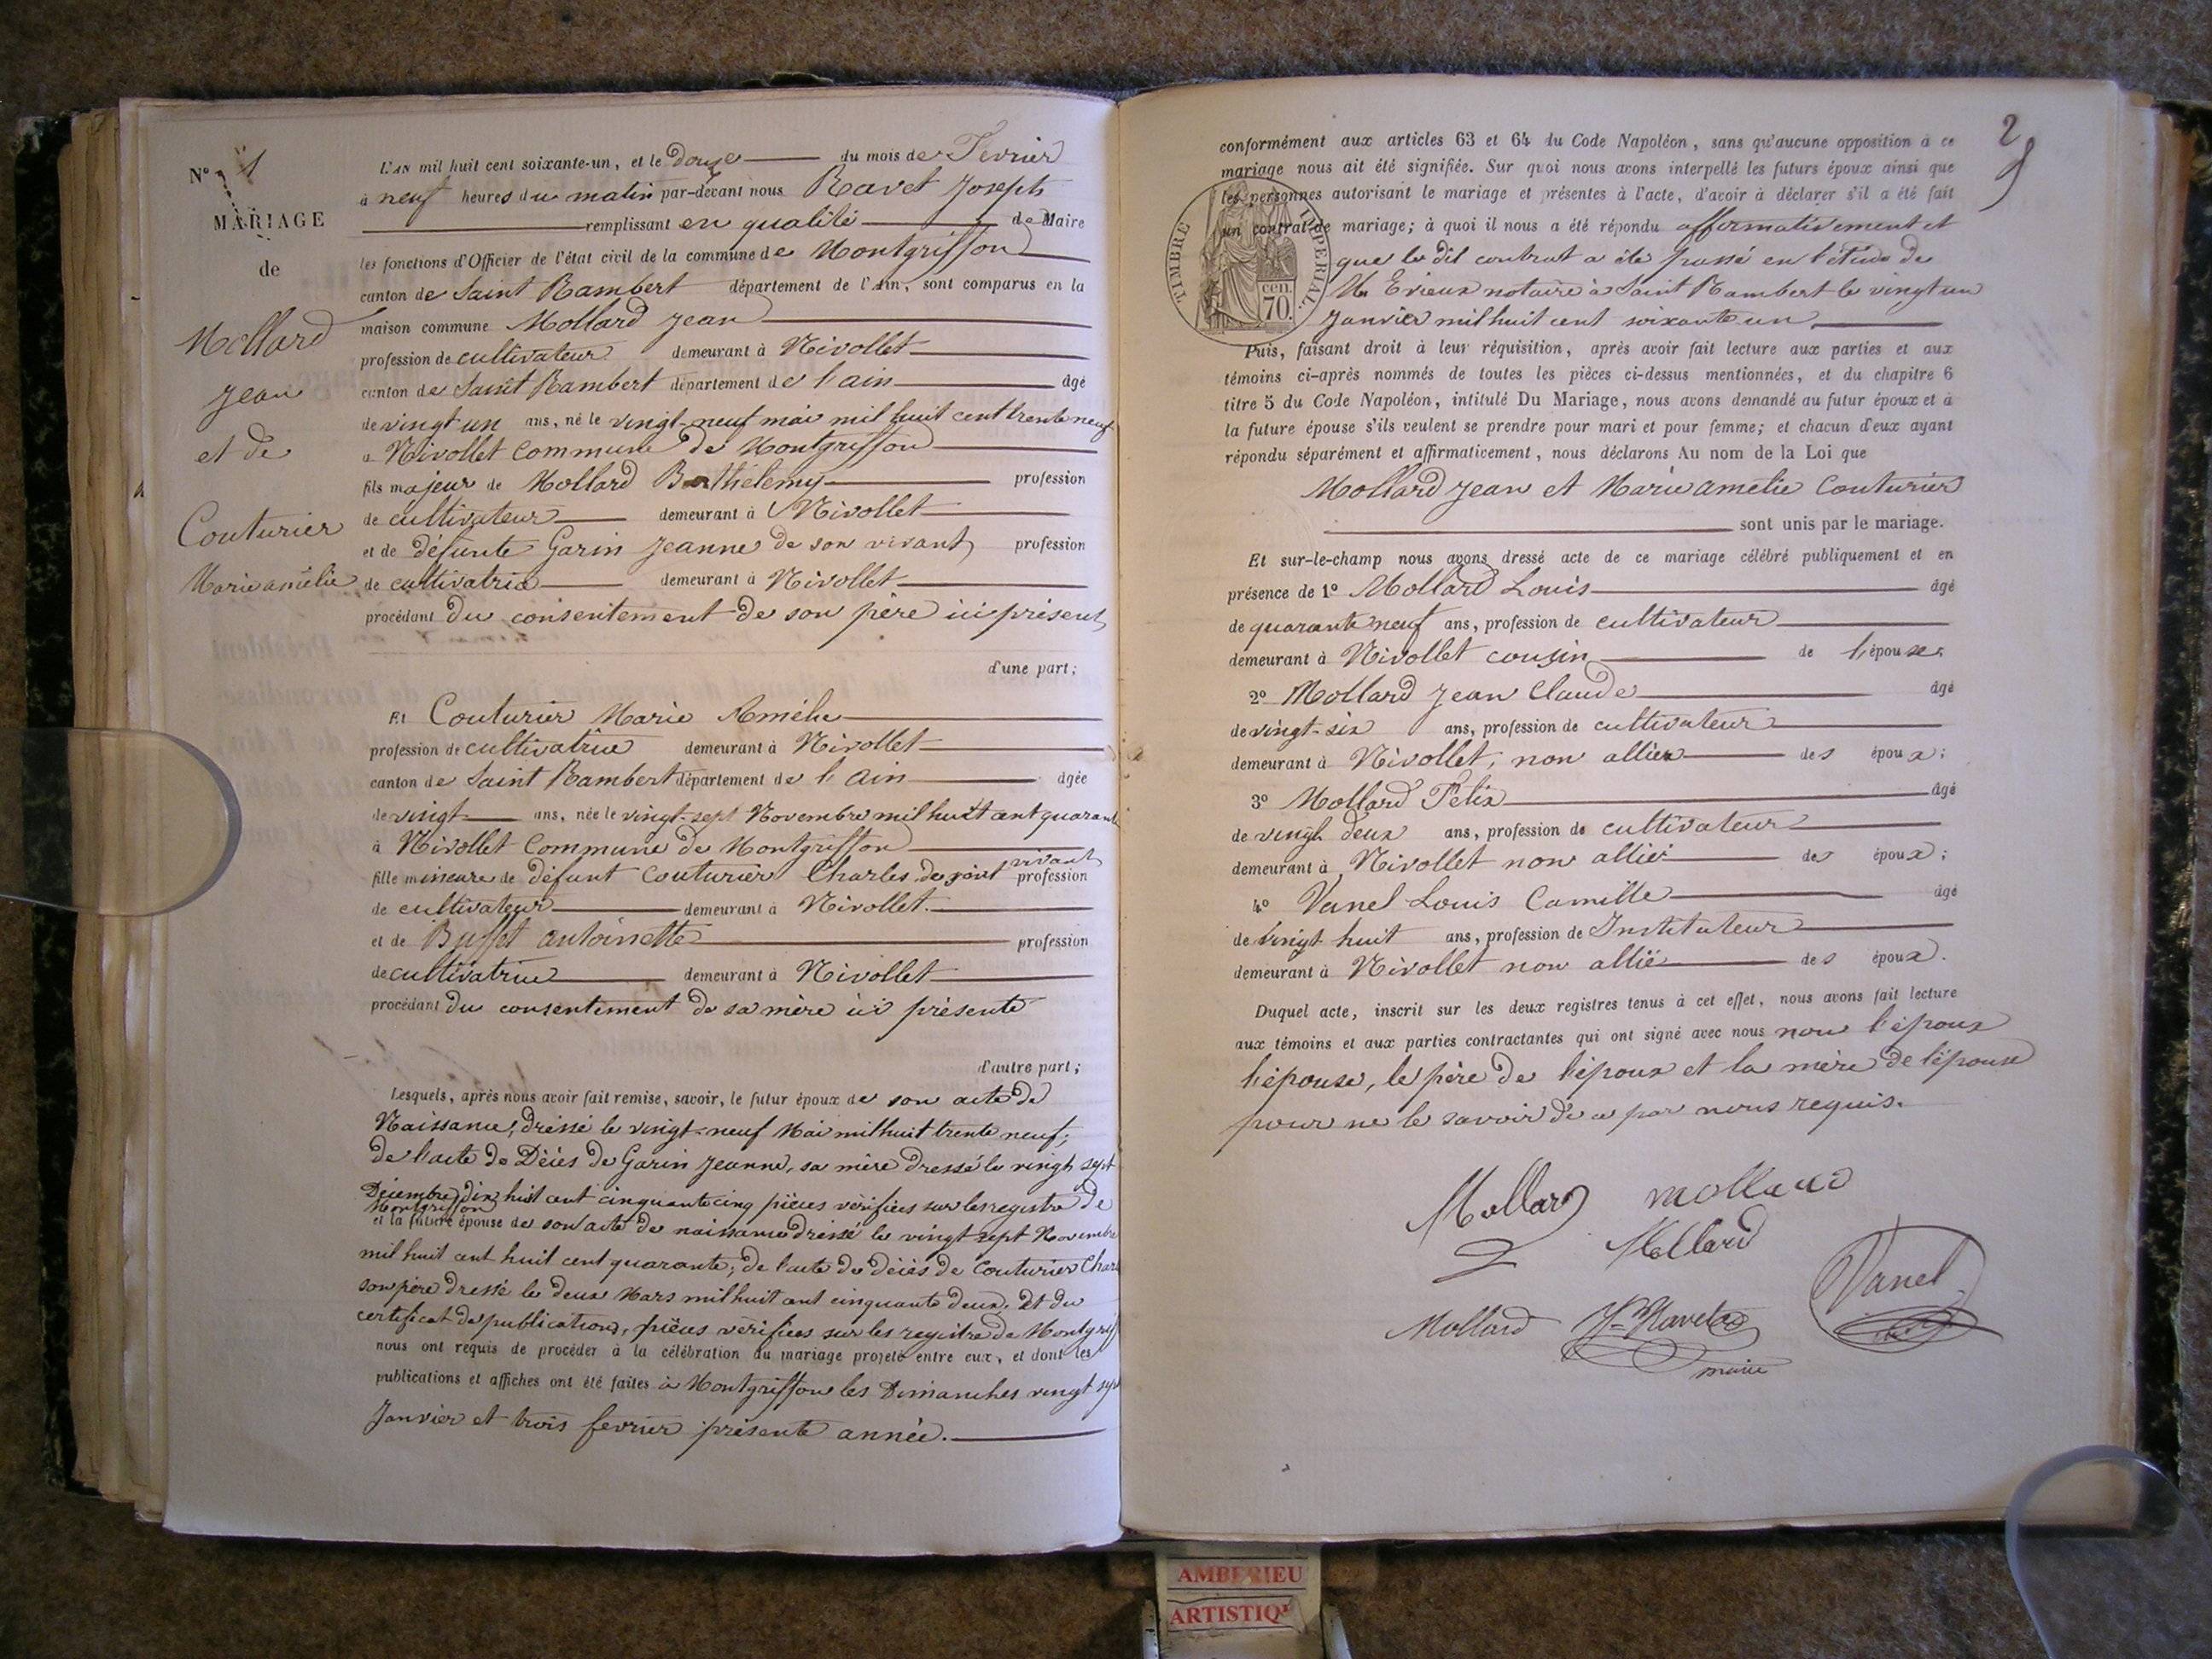 N° 1
MARIAGE
de
Mollard
Jean
et de
Couturier
Marie amélie
L'AN mil huit cent soixante-un, et le douze du mois de Février
à neuf heures du matin par-devant nous Ravet Joseph
remplissant en qualité de Maire
les fonctions d'Officier de l'état civil de la commune de Montgriffon
canton de Saint Rambert département de l'Ain, sont comparus en la
maison commune Mollard Jean
profession de cultivateur demeurant à Nivollet
canton de Saint Rambert département de l'ain âgé
de vingt-un ans, né le vingt-neuf mai mil huit cent trente neuf
à Nivollet Commune de Montgriffon
fils majeur de Mollard Barthélemy profession
de cultivateur demeurant à Nivollet
et de défunte Garin Jeanne de son vivant profession
de cultivatrice demeurant à Nivollet
procédant du consentement de son père ici présent
d'une part;
Et Couturier Marie Amélie
profession de cultivatrice demeurant à Nivollet
canton de Saint Rambert département de l'Ain âgée
de vingt ans, née le vingt-sept Novembre mil huit cent quarante
à Nivollet Commune de Montgriffon
fille mineure de défunt Couturier Charles de son vivant profession
de cultivateur demeurant à Nivollet
et de Buffet antoinette profession
de cultivatrice demeurant à Nivollet
procédant du consentement de sa mère ici présente
d'autre part;
Lesquels, après nous avoir fait remise, savoir, le futur époux de son acte de
Naissance, dressé le vingt-neuf Mai mil huit trente neuf;
de l'acte de Décès de Garin Jeanne, sa mère dressé le vingt sept
Décembre dix huit cent cinquante cinq pièces vérifiées sur les registre de
Montgriffon
et la future épouse de son acte de naissance dressé le vingt sept Novembre
mil huit cent huit cent quarante; de l'acte de décès de Couturier Char
son père dressé le deux Mars mil huit cent cinquante deux. Et du
certificat de publications, pièces vérifiées sur les registre de Montgrif
nous ont requis de procéder à la célébration du mariage projeté entre eux, et dont les
publications et affiches ont été faites à Montgriffon les Dimanches vingt sept
Janvier et trois fevrier présente année.
2
conformément aux articles 63 et 64 du Code Napoléon, sans qu'aucune opposition à ce
mariage nous ait été signifiée. Sur quoi nous avons interpellé les futurs époux ainsi que
les personnes autorisant le mariage et présentes à l'acte, d'avoir à déclarer s'il a été fait
un contrat de mariage; à quoi il nous a été répondu affirmativement et
que le dit contrat a été passé en l'étude de
Me Evieux notaire à Saint Rambert le vingt un
Janvier mil huit cent soixante un
TIMBRE IMPERIAL
cen.
70.
Puis, faisant droit à leur réquisition, après avoir fait lecture aux parties et aux
témoins ci-après nommés de toutes les pièces ci-dessus mentionnées, et du chapitre 6
titre 5 du Code Napoléon, intitulé Du Mariage, nous avons demandé au futur époux et à
la future épouse s'ils veulent se prendre pour mari et pour femme; et chacun d'eux ayant
répondu séparément et affirmativement, nous déclarons Au nom de la Loi que
Mollard Jean et Marie amélie Couturier
sont unis par le mariage.
Et sur-le-champ nous avons dressé acte de ce mariage célébré publiquement et en
présence de 1° Mollard Louis âgé
de quarante neuf ans, profession de cultivateur
demeurant à Nivollet cousin de l'épouse;
2° Mollard Jean Claude âgé
de vingt-six ans, profession de cultivateur
demeurant à Nivollet, non allier des époux;
3° Mollard Felix âgé
de vingt deux ans, profession de cultivateur
demeurant à Nivollet non allié des époux;
4° Vanel Louis Camille âgé
de vingt huit ans, profession de Instituteur
demeurant à Nivollet non allié des époux.
Duquel acte, inscrit sur les deux registres tenus à cet effet, nous avons fait lecture
aux témoins et aux parties contractantes qui ont signé avec nous non l'époux
l'épouse, le père de l'époux et la mère de l'épouse
pour ne le savoir de ce par nous requis.
Mollard mollard
Mollard
Vanel
Mollard J. Ravet
maire
AMBERIEU
ARTISTIQU